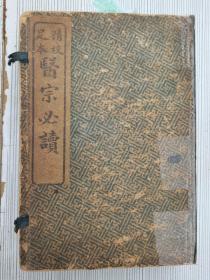 精校
足本
醫宗必讀